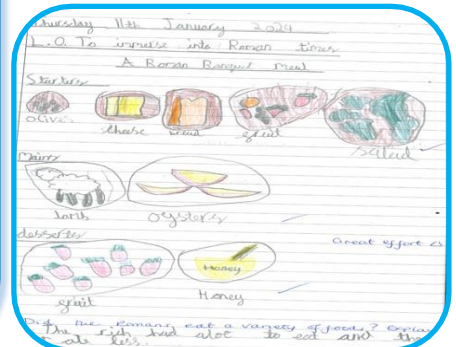 Thursday 11th January 2024
L.O. To immerse into Roman times
A Roman Banquet meal
Starters
olives cheese bread fruit salad
Mains
lamb oysters
desserts
Great effort
Honey
fruit Honey
Did the Romans eat a variety of foods? Explain
The rich had alot to eat and the
ate less.